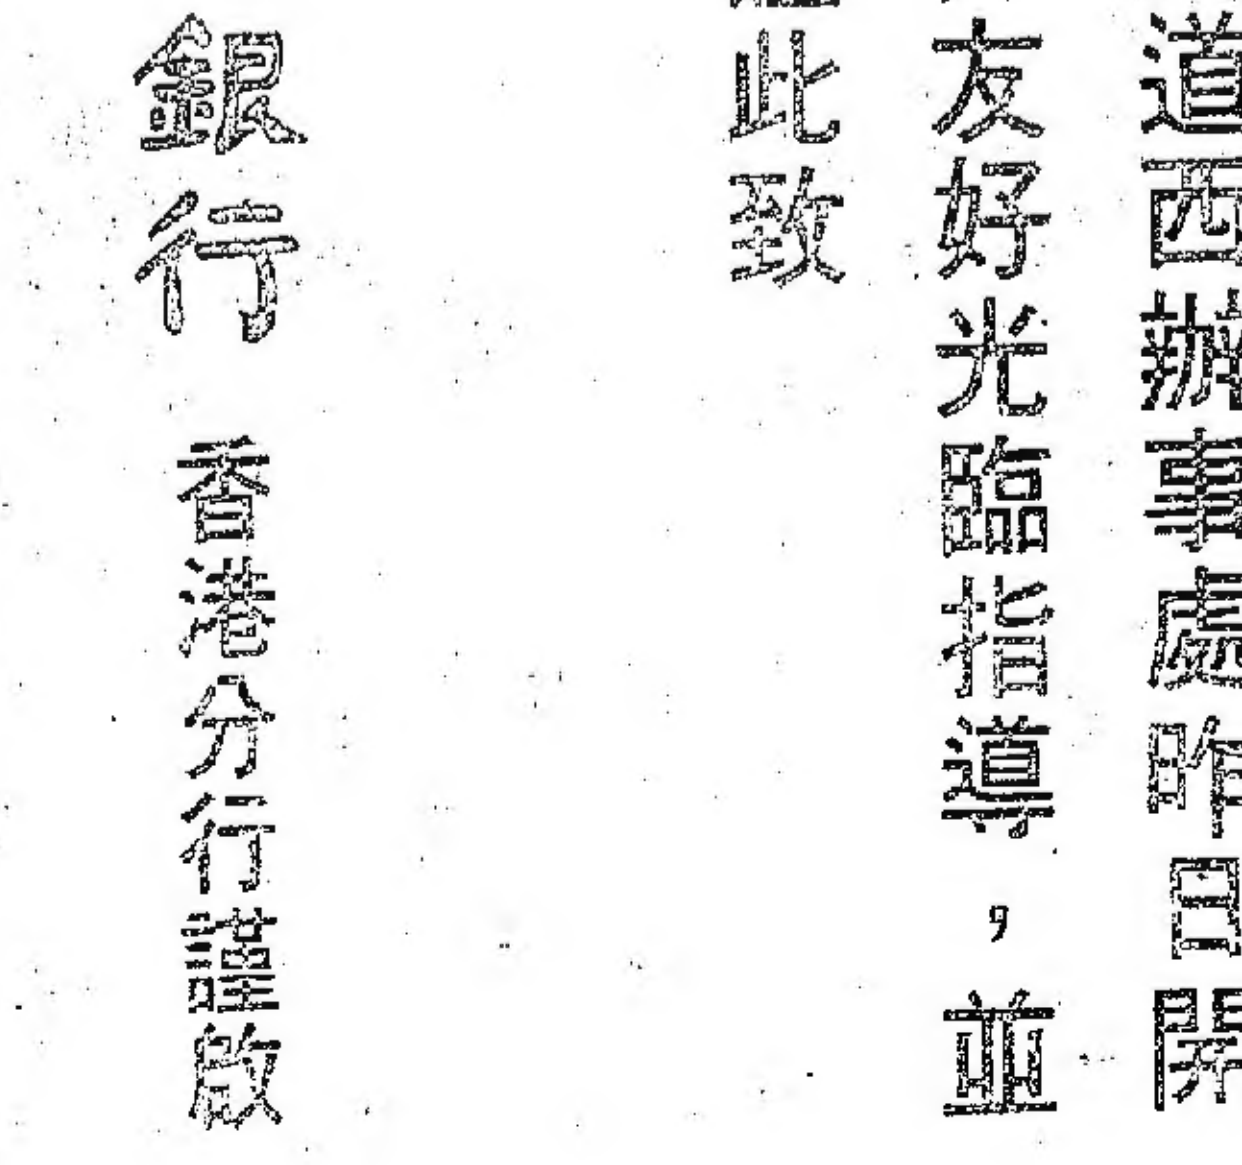 道西辦事處昨日開
友好光臨指導，並
此致
銀行 香港分行謹啟